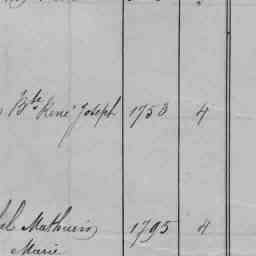 Bte René Joseph 1753 4
Mathurin 1795 4
Marie